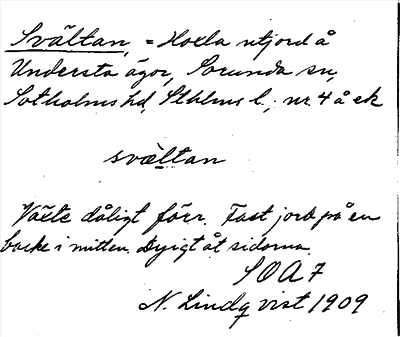 Svältan, = Hoxla utjord å
Understa ägor, Sorunda sn,
Sotholms hd, Sthlms l.; nr 4 å ek
svæltan
Växte dåligt förr. Fast jord på en
backe i mitten. Dyigt åt sidorna.
SOA 7
N. Lindqvist 1909